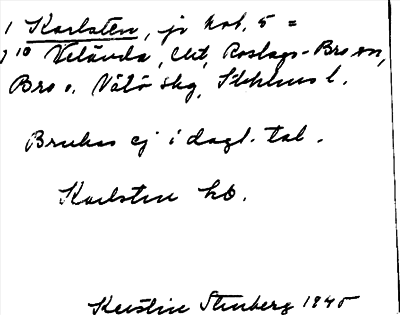 1 Karlsten, jr kok. 5 =
1 10 Veländа, Ckt, Roslags-Bro sn,
Bro o. Vätö skg, Sthlms l.
Brukas ej i dagl. tal.
Karlsten hb.
Kerstin Stenberg 1945